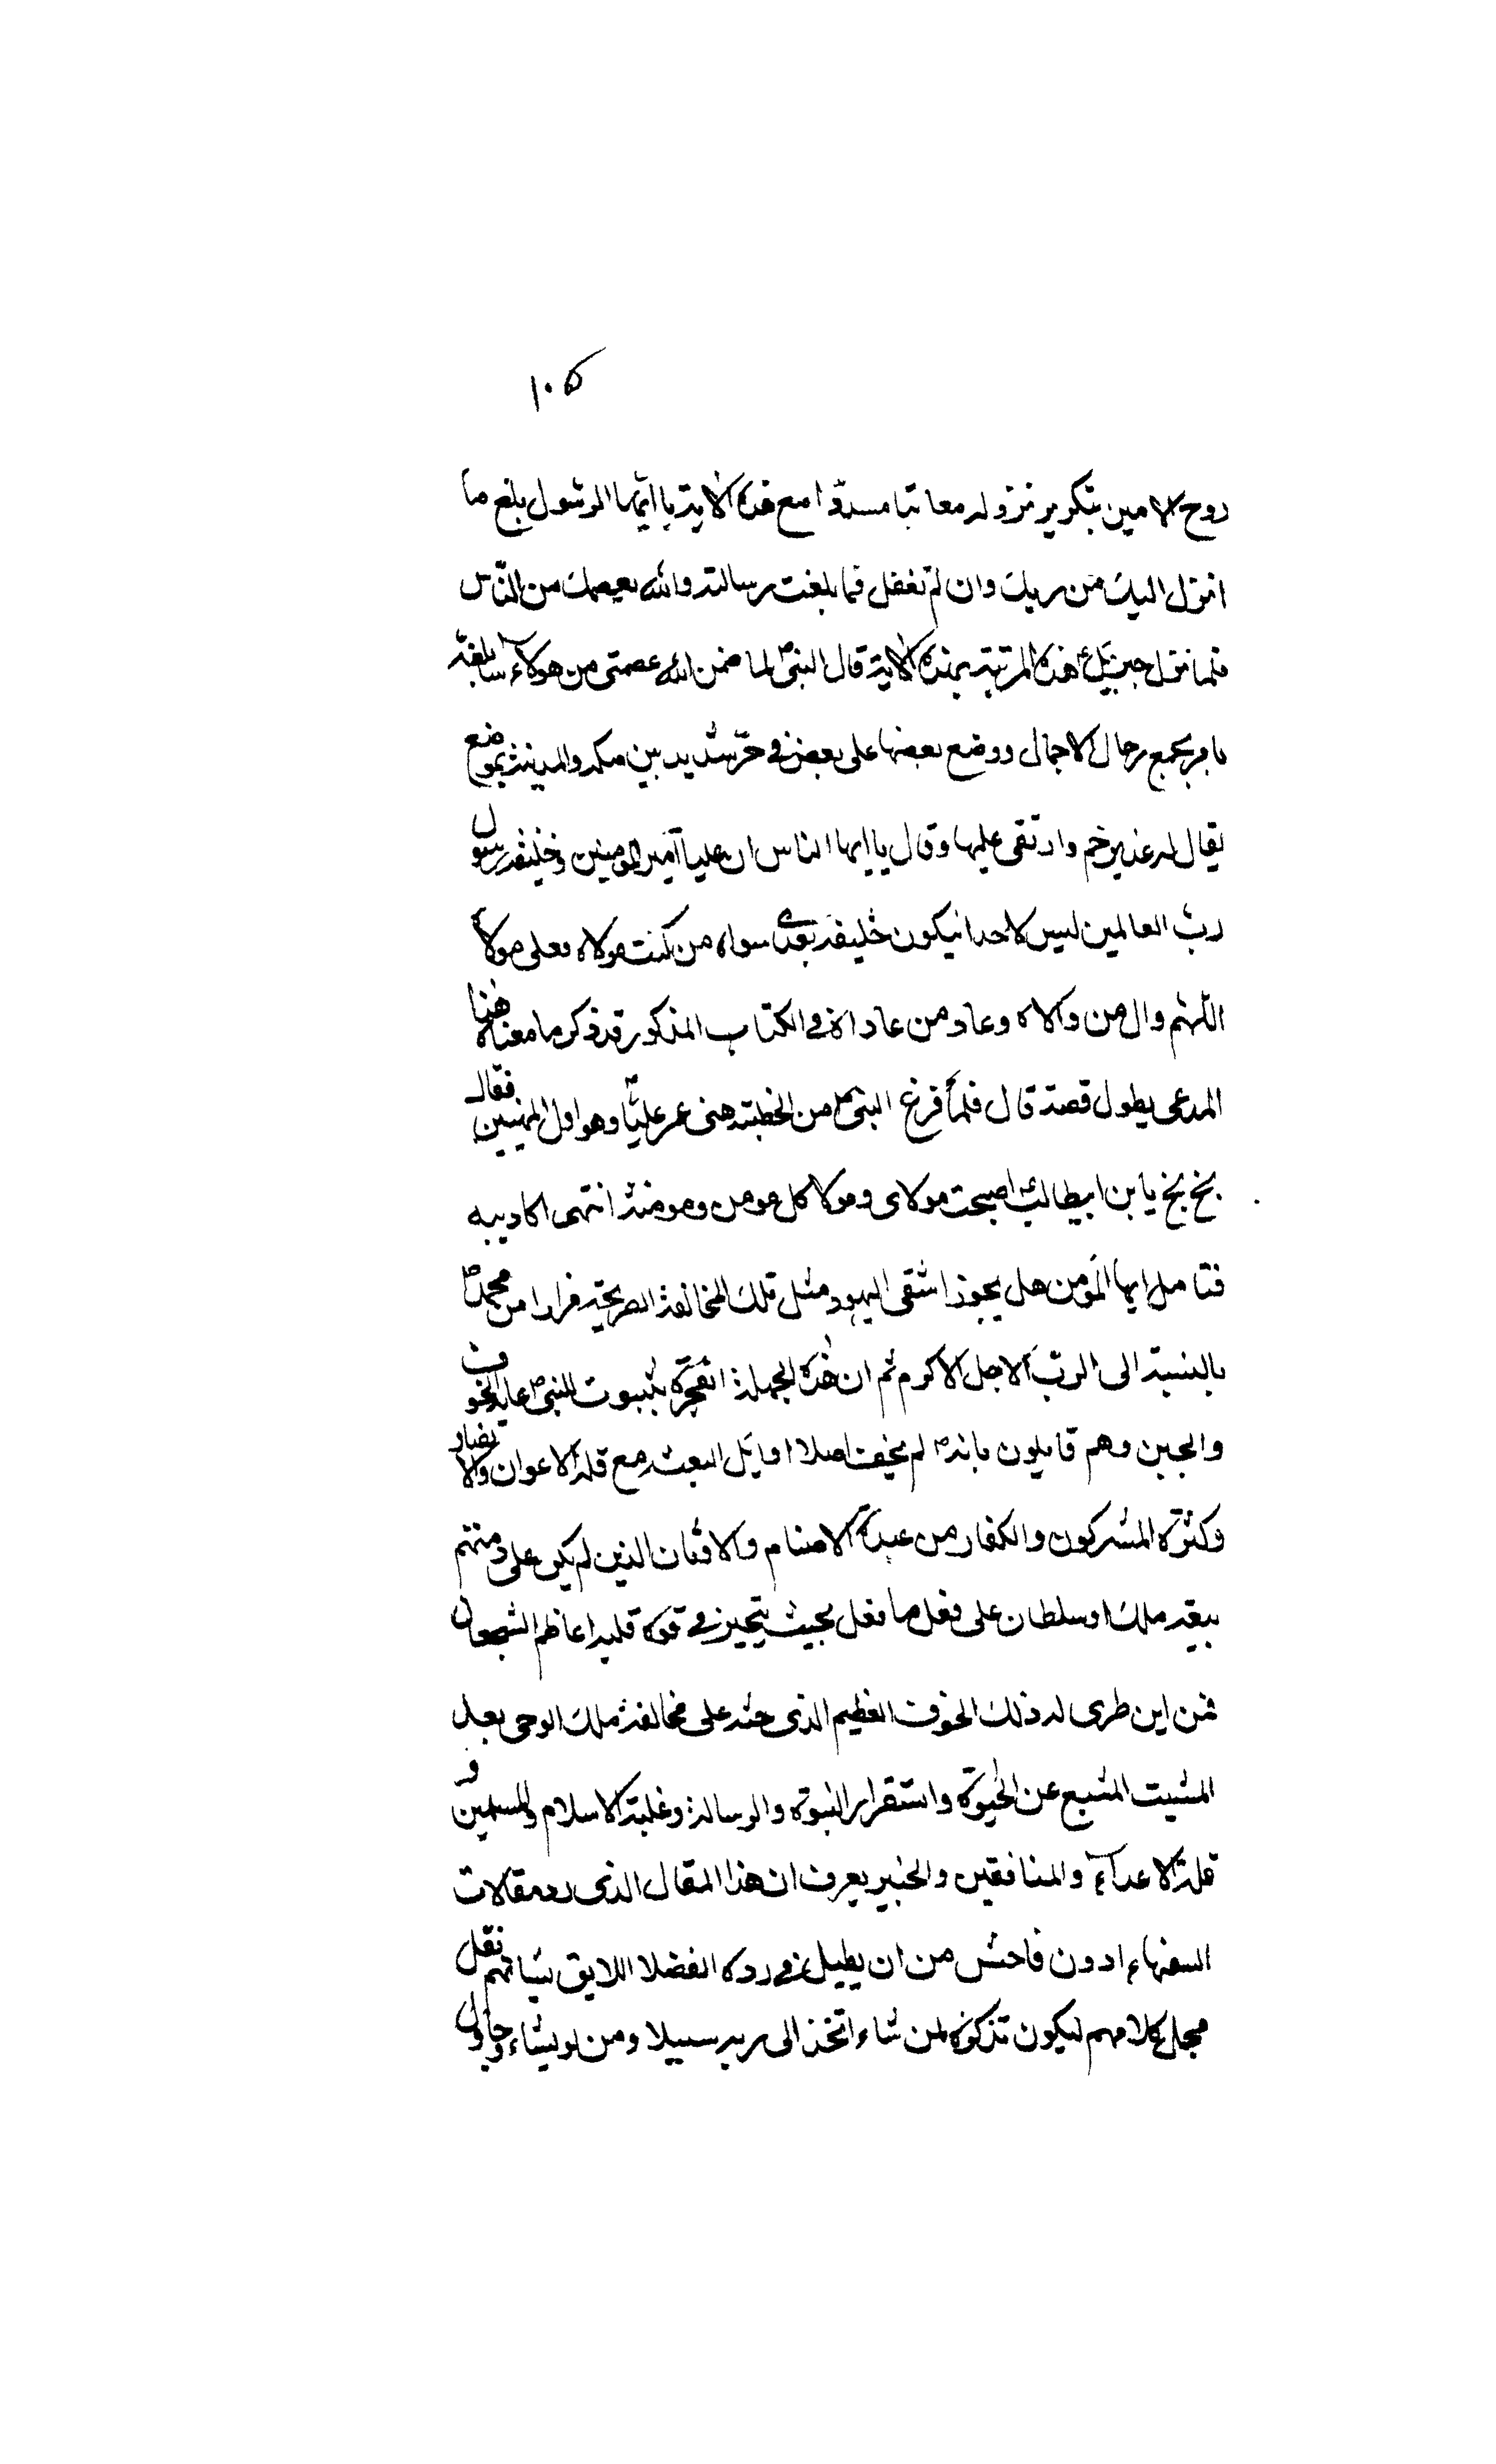 ١٠٥
روح الامين بتكرير نزوله معاتبا مسددا مع هذه الاية يا ايها الرسول بلغ ما
انزل اليك من ربك وان لم تفعل فما بلغت رسالته والله يعصمك من الناس
فلما نزل جبرئيل هذه المرتبة بهذه الاية قال النبي لما ضمن الله عصمتى من هولاء سابلغه
فامر بجمع رحال الاجمال ووضع بعضها على بعض في حر شديد بين مكه والمدينة بموضع
يقال له غدير خم وارتقى عليها وقال يا ايها الناس ان عليا امير المومنين وخليفه رسول
رب العالمين ليس لاحد ان يكون خليفه بعدى سواه من كنت مولاه فعلى مولاه
اللهم وال من والاه وعاد من عاداه في الكتاب المذكور قد ذكر ما معناه هنا
المدعى بطول قصة قال فلما فرغ النبى من الخطبة هنى عمر عليا وهو اول المهنيين فقال
بخ بخ يا بن ابيطالب اصبحت مولاى ومولا كل مومن ومومنة انتهى اكاذيبه
فتامل ايها المومن هل يجوز اشقى اليهود مثل تلك المخالفة الصريحة فرارا من محمد
بالنسبة الى الرب الاجل الاكرم ثم ان هذه الجملة بثبوت للنبى الخوف
والجبن وهم قايلون بانه لم يخف اصلا اوايل البعثه مع قلة الاعوان والانصار
وكثرة المشركون والكفار من عبدة الاصنام والاوثان الذين لم يكن على ذمتهم
بيعة ملك او سلطان على فعل ما فعل بحيث يتحير في قوة قلبه اعاظم الشجعان
فمن اين طرى له ذلك الخوف العظيم الذى حثه على مخالفة ملك الوحى بعد
المشيب المشبع عن الحيوة واستقرار النبوة والرسالة وغلبة الاسلام والمسلمين و
قلة الاعداء والمنافقين والخبير يعرف ان هذا المقال الذى مقالات
السفهاء ادون فاحش من ان يطيل في رده الفضلا اللايق بشانهم نقل
مجمل كلامهم ليكون تذكرة لمن شاء اتخذ الى ربه سبيلا ومن لو يشاء